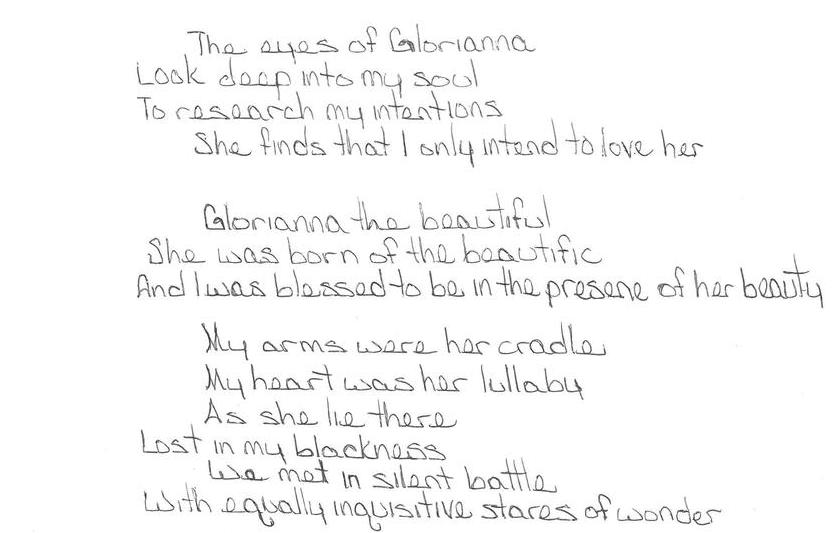 The eyes of Glorianna
Look deep into my soul
To research my intentions
She finds that I only intend to love her
Glorianna the beautiful
She was born of the beautific
And I was blessed to be in the presene of her beauty
My arms were her cradle
My heart was her lullaby
As she lie there
Lost in my blackness
We met in silent battle
With equally inquisitive stares of wonder